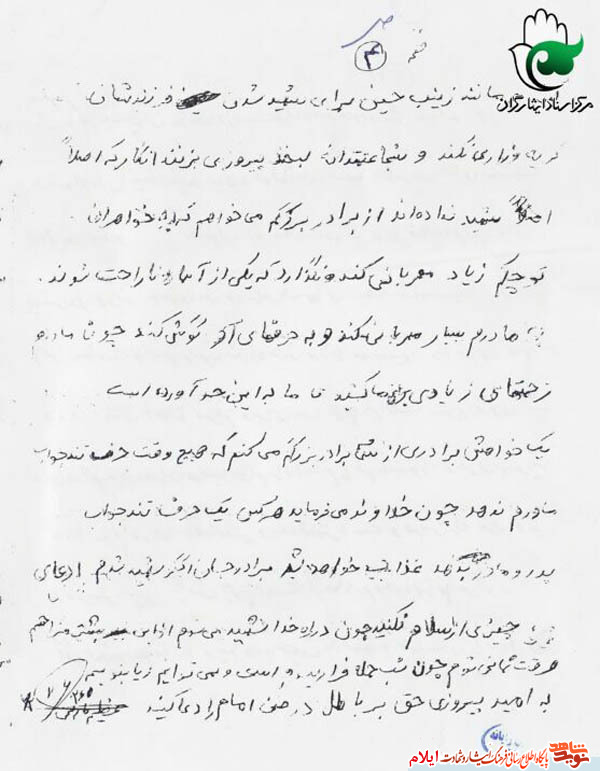 صفحه ۴
مرکز اسناد ایثارگران
مانند زینب حسین برای شهید شدن فرزندشان
گریه و زاری نکنند و شجاعتمندانه لبخند پیروزی بزنند انگار که اصلاً
اصلاً شهید نداده‌اند از برادر بزرگم می‌خواهم که به خواهران
کوچکم زیاد مهربانی کند و نگذارد که یکی از آنها ناراحت شوند.
به مادرم بسیار مهربانی کند و به حرفهای گوش کند چون مادرم
زحمتهای زیادی برای ما کشید تا ما به این حد آورده است
یک خواهش برادری از برادر بزرگم می‌کنم که هیچ وقت حرف تند جواب
مادرم ندهد چون خداوند می‌فرماید هر کس یک حرف تند جواب
پدر و مادر بدهد عذاب خواهد شد برادر جان اگر شهید شدم ادعای
چیزی از اسلام نکنید چون در راه خدا شهید می‌شوم از این بیشتر مزاحم
وقت شما نمی‌شوم چون شب حمله فرا رسیده است و نمی‌توانم زیاد بنویسم
به امید پیروزی حق بر باطل در ضمن امام را دعا کنید
نوید شاهد
پایگاه اطلاع رسانی فرهنگ ایثار و شهادت ایلام